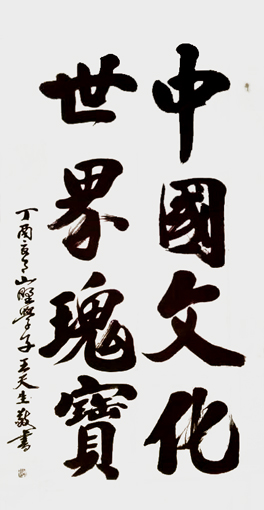 中國文化
世界瑰寶
丁酉年山野學子王天生敬書